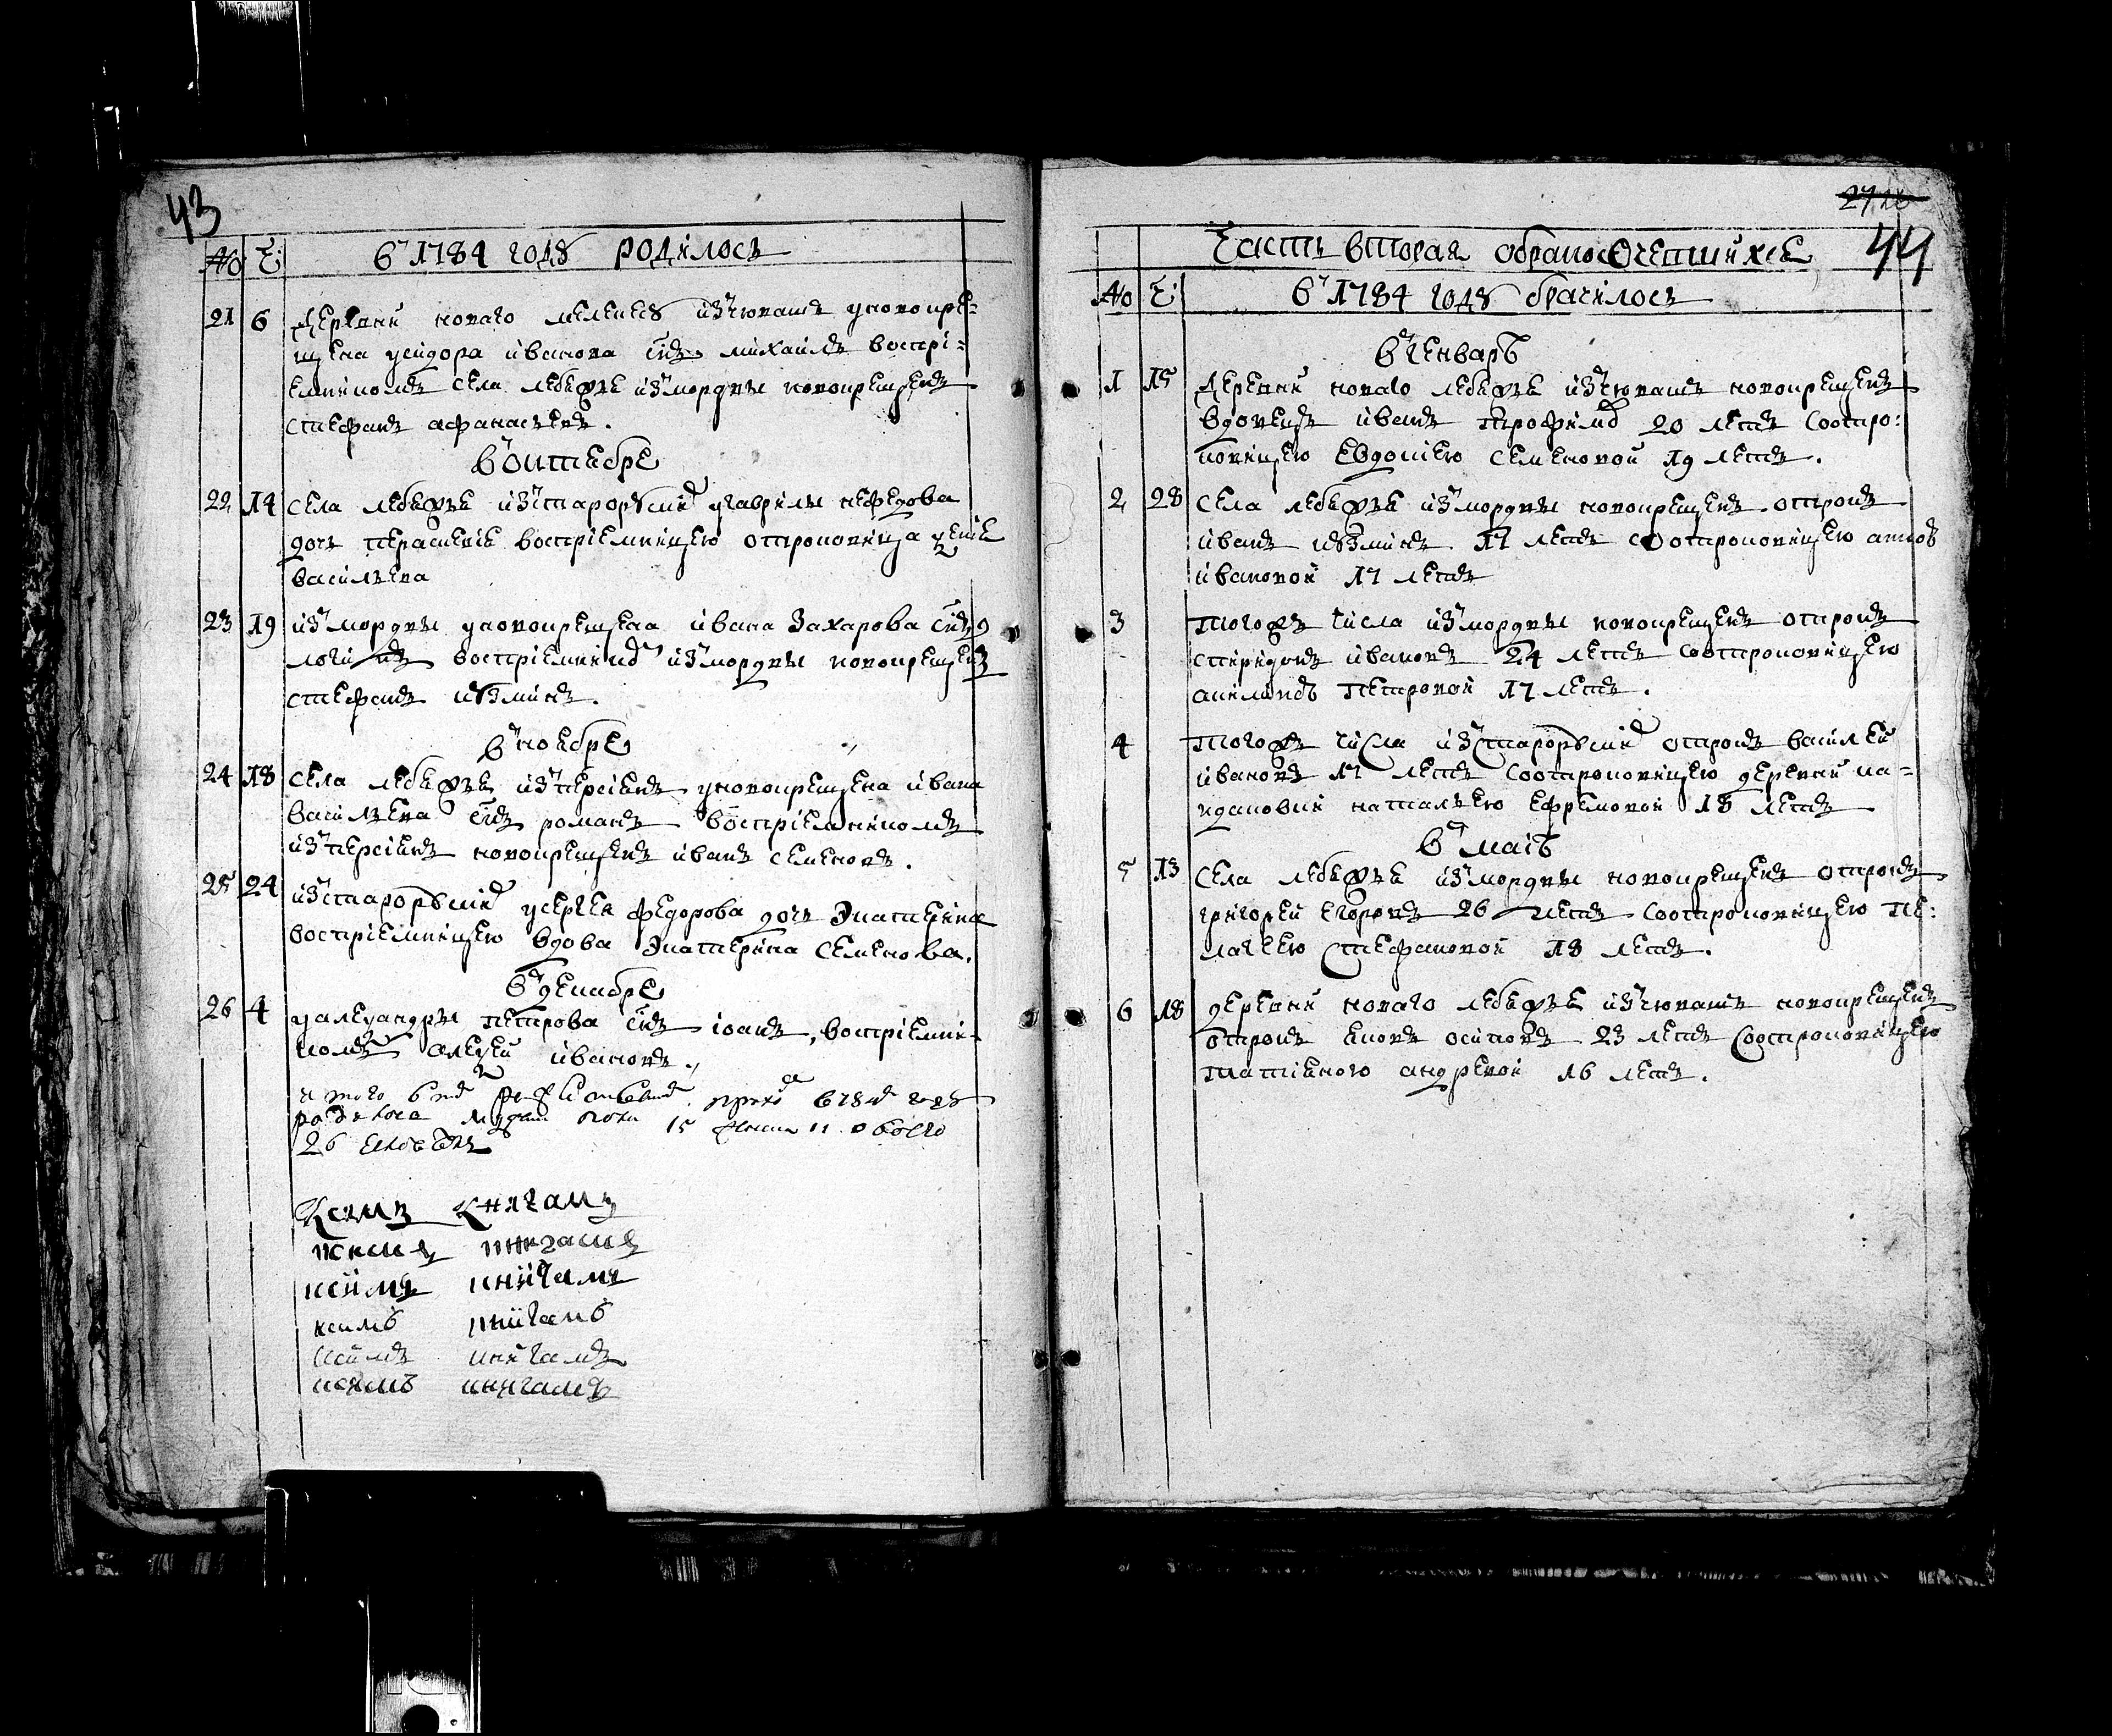 43
№ Ч: в 1784 году родилось
21 6 деревни новаго из чювашъ у новокре=
щена Исидора Иванова снъ Михаилъ воспрі=
емникомъ села Лебежье из мордвы новокрещенъ
Стефанъ Афанасьевъ.
в октебре
22 14 села Лебежье из старорускихъ у Гаврилы Нефедова
дочь Пераскевіе воспріемницею отроковица
Васильева
23 19 из мордвы у новокрещена Ивана Захарова снъ
воспріемникъ из мордвы новокрещенъ
Стефанъ Кузминъ.
в ноебре
24 18 села Лебежье из персіенъ у новокрещена Ивана
Васильева снъ Романъ воспріемникомъ
из персіенъ новокрещенъ Иванъ Семеновъ.
25 24 из старорускихъ у Сергея Федорова дочь Экатерина
воспріемницею вдова Экатерина Семенова.
в декабре
26 4 у Александры Петрова снъ Іоанъ, воспріемни-
комъ Алексей Ивановъ.
итого в 784 году
родилося мужеска полу 15 женска 11 обоего
26 человекъ
Ксимъ книгамъ
ксимъ книгамъ
ксимъ книгамъ
ксимъ книгамъ
ксимъ книгамъ
ксимъ книгамъ
44
Часть вторая о бракосочетшихсе
№ Ч: в 1784 году брачилось
в генваръ
1 15 деревни новаго Лебежье из чювашъ новокрещенъ
вдовецъ Иванъ Трофимъ 20 летъ со отро:
ковицею Евдокіею Семеновой 19 летъ.
2 28 села Лебежье из мордвы новокрещенъ отрокъ
Иванъ Кузминъ 17 летъ со отроковицею
Ивановой 17 летъ
3 тогожъ числа из мордвы новокрещенъ отрокъ
Спиридонъ Ивановъ 24 летъ со отроковицею
Петровой 17 летъ.
4 тогожъ числа из старорускихъ отрокъ Василей
Ивановъ 17 летъ со отроковицею деревни
Натальею Ефремовой 18 летъ
в маіъ
5 13 села Лебежье из мордвы новокрещенъ отрокъ
Григорей Егоровъ 26 летъ со отроковицею Пе:
лагеею Стефановой 18 летъ.
6 18 деревни новаго Лебежье из чювашъ новокрещенъ
отрокъ Осиповъ 23 летъ со отроковицею
Татіяною Андревой 16 летъ.